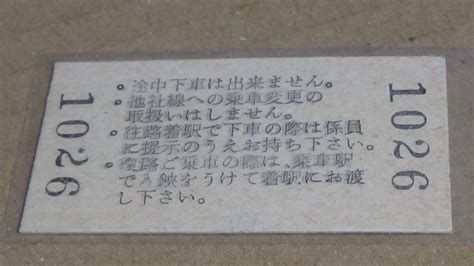 1026
。途中下車は出来ません。
。他社線への乗車変更の
取扱いはしません。
。往路着駅で下車の際は係員
に提示のうえお持ち下さい。
。復路ご乗車の際は、乗車駅
で入鋏をうけて着駅にお渡
し下さい。
1026